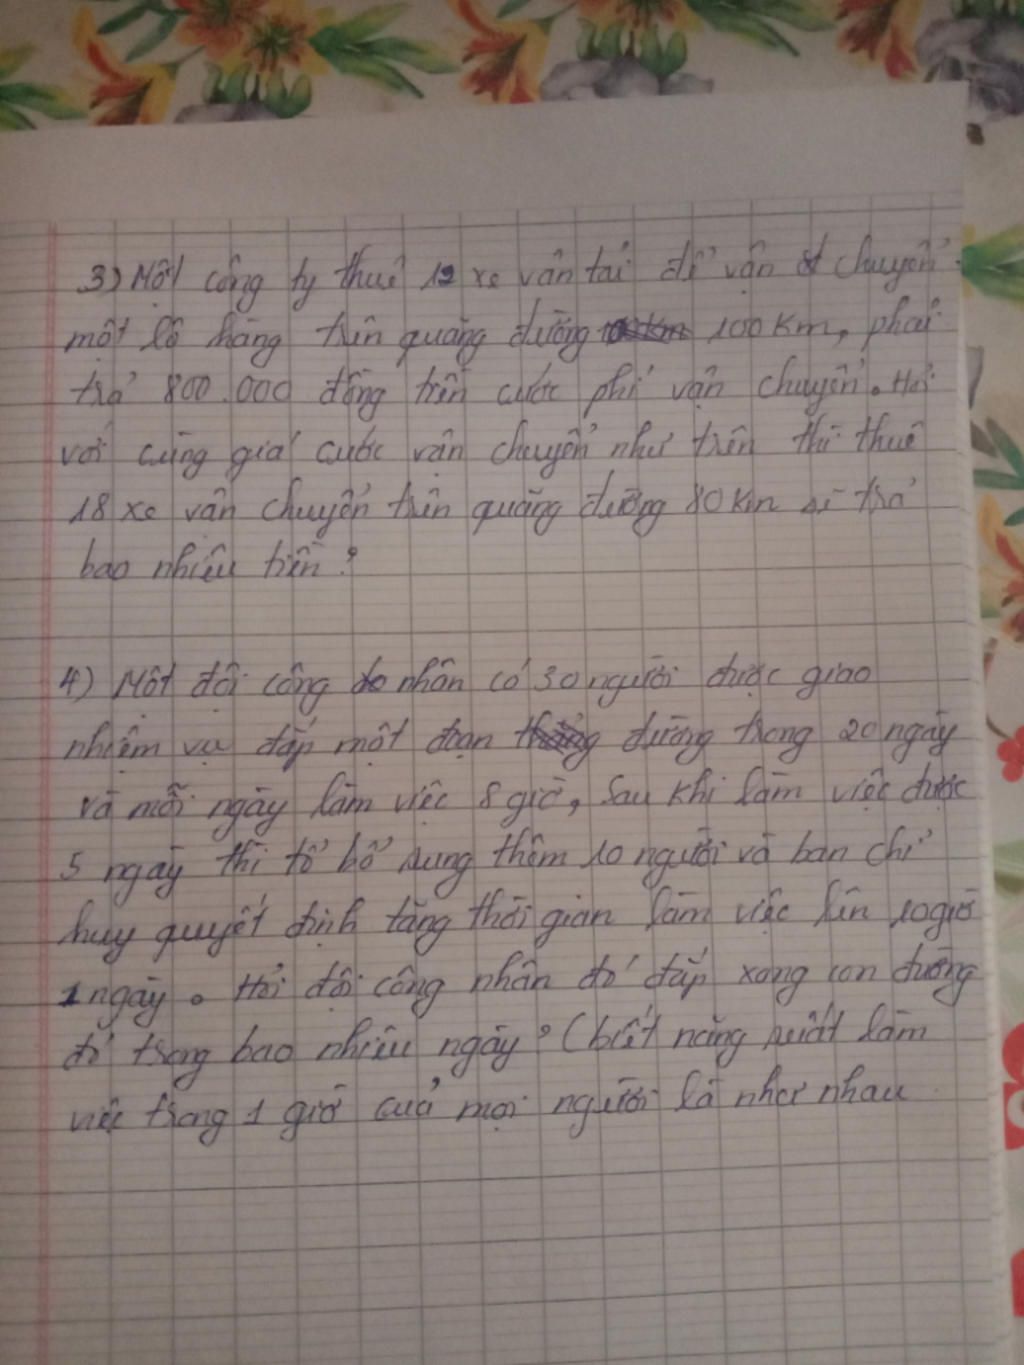 3) Một công ty thuê 12 xe vân tải để vận chuyển
một lô hàng trên quãng đường 100 km, phải
trả 800.000 đồng trên cước phí vận chuyển. Hỏi
với cùng giá cước vân chuyển như trên thì thuê
18 xe vân chuyển trên quãng đường 80 km sẽ trả
bao nhiêu tiền?
4) Một đội công nhân có 30 người được giao
nhiệm vụ đắp một đoạn đường trong 20 ngày
và mỗi ngày làm việc 8 giờ, Sau khi làm việc được
5 ngày thì tổ bổ sung thêm 10 người và ban chỉ
huy quyết định tăng thời gian làm việc lên 10 giờ
1 ngày. Hỏi đội công nhân đó đắp xong con đường
đó trong bao nhiêu ngày? (biết năng suất làm
việc trong 1 giờ của mọi người là như nhau